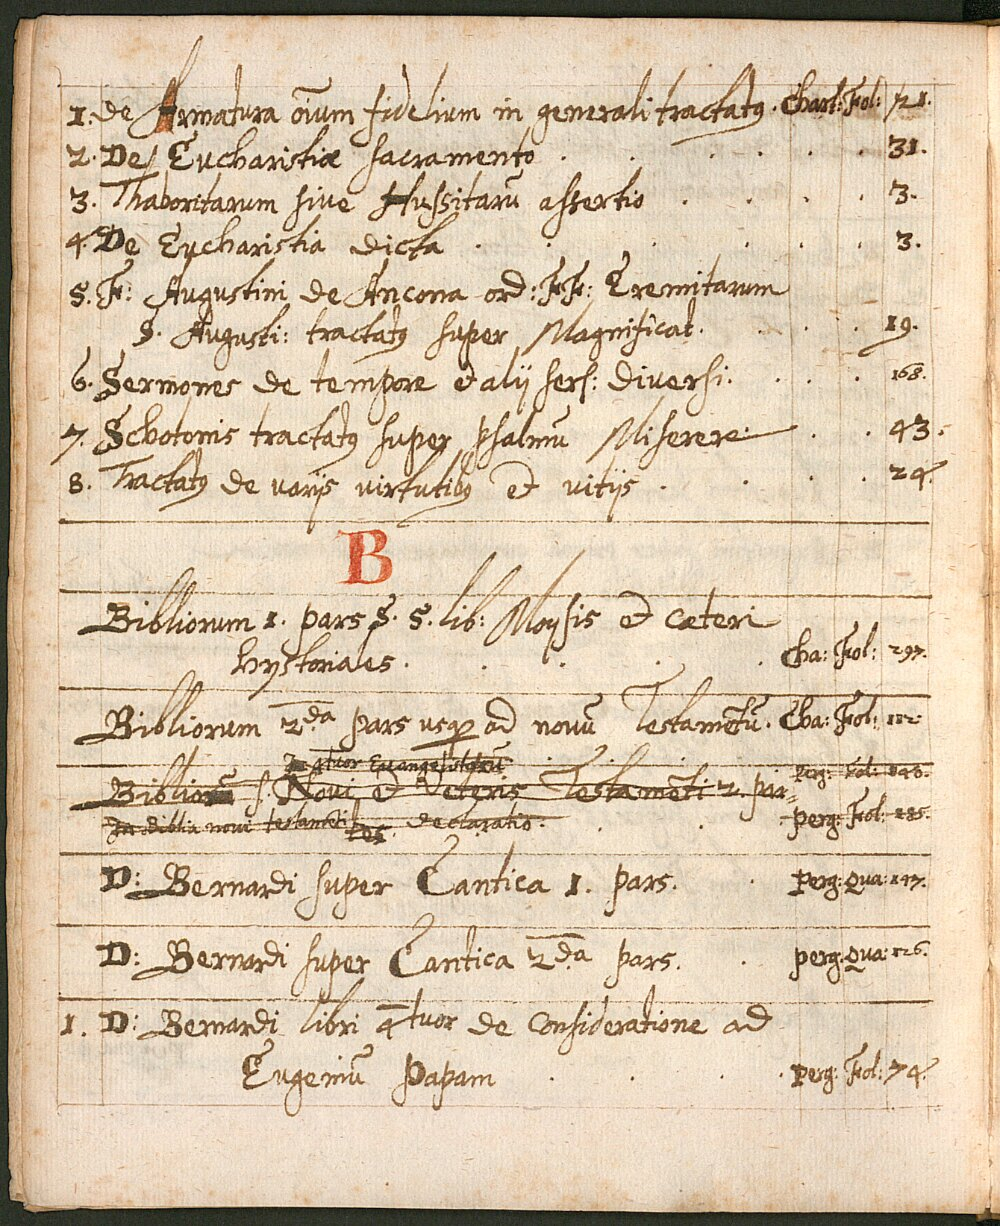 1. De Armatura oīum fidelium in generali tractatꝰ. Chart: Fol: 721.
2. De Eucharistiæ sacramento . . . . . . 31.
3. Thaboritarum sive Hussitarū assertio . . . . 3.
4. De Eucharistia dicta . . . . . 3.
5. F: Augustini de Ancona ord: FF: Eremitarum
S. Augusti: tractatꝰ super Magnificat. . . . . 19.
6. Sermones de tempore et alij sers: diversi. . . . 168.
7. Schotonis tractatꝰ super psalmū Miserere. . . 43.
8. Tractatꝰ de varijs virtutibꝰ et vitijs . . . . 24.
B
Bibliorum 1. pars S. 5. lib: Moysis et cæteri
hystoriales . . . . . Cha: Fol: 297.
Bibliorum 2da pars usqꝫ ad novū Testamētū. Cha: Fol: 112.
4tuor Evangelistarū
Novi et Veteris Testamēti 2. par= perg: Fol: 248.
In biblia novi testamēti tes. declaratio. . . . perg: Fol: 285.
D: Bernardi super Cantica 1. pars. . perg: Qua: 147.
D: Bernardi super Cantica 2da pars. . perg: Qua: 126.
1. D: Bernardi libri 4tuor de Consideratione ad
Eugeniū Papam . . . . perg: Fol: 74.